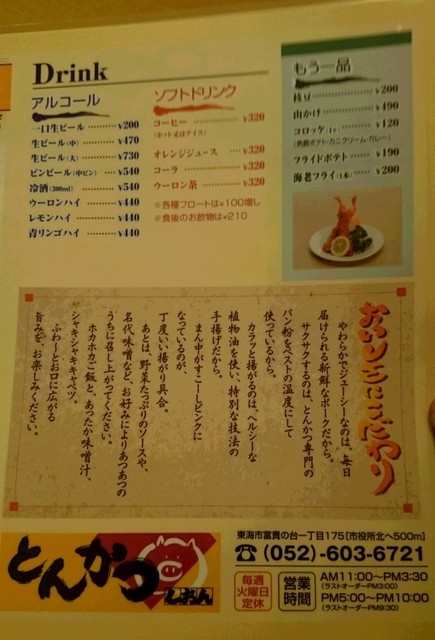 Drink
アルコール
一口生ビール ¥200
生ビール(中) ¥470
生ビール(大) ¥730
ビンビール(中ビン) ¥540
冷酒(300ml) ¥540
ウーロンハイ ¥440
レモンハイ ¥440
青リンゴハイ ¥440
ソフトドリンク
コーヒー ¥320
(ホット又はアイス)
オレンジジュース ¥320
コーラ ¥320
ウーロン茶 ¥320
※各種フロートは¥100増し
※食後のお飲物は¥210
もう一品
枝豆 ¥200
山かけ ¥490
コロッケ(1ヶ) ¥120
(男爵ポテト・カニクリーム・カレー)
フライドポテト ¥190
海老フライ(1本) ¥200
おいしさにこだわり
やわらかでジューシーなのは、毎日
届けられる新鮮なポークだから。
サクサクするのは、とんかつ専門の
パン粉をベストの温度にして
使っているから。
カラッと揚がるのは、ヘルシーな
植物油を使い、特別な技法の
手揚げだから。
まん中がすこーしピンクに
なっているのが、
丁度いい揚がり具合。
あとは、野菜たっぷりのソースや、
名代味噌など、お好みによりあつあつの
うちに召し上がってください。
ホカホカご飯と、あったか味噌汁、
シャキシャキキャベツ。
ふわーとお口に広がる
旨みを、お楽しみください。
とんかつ
東海市富貴の台一丁目175[市役所北へ500m]
☎(052)-603-6721
毎週
火曜日
定休
営業
時間
AM11:00〜PM3:30
(ラストオーダーPM3:00)
PM5:00〜PM10:00
(ラストオーダーPM9:30)